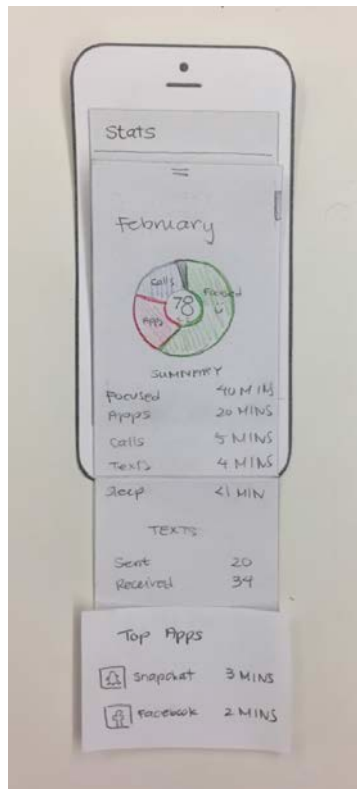 Stats
February
Calls
Focused
78
Apps
SUMMARY
Focused 40 MINS
Apps 20 MINS
Calls 5 MINS
Texts 4 MINS
Sleep <1 MIN
TEXTS
Sent 20
Received 34
Top Apps
Snapchat 3 MINS
f Facebook 2 MINS